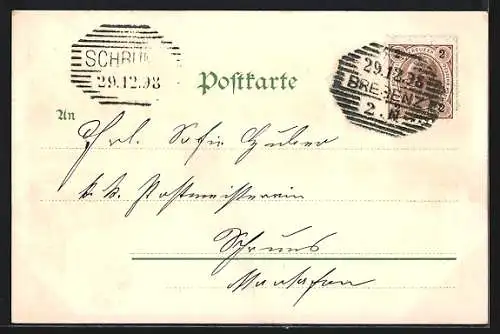 SCHRU
29.12.98
Postkarte
2 KREUZER 2
29.12.98
BREGENZ
2
An
Frl. Sofie Huber
k. k. Postmeisterin
Schruns
Montafon